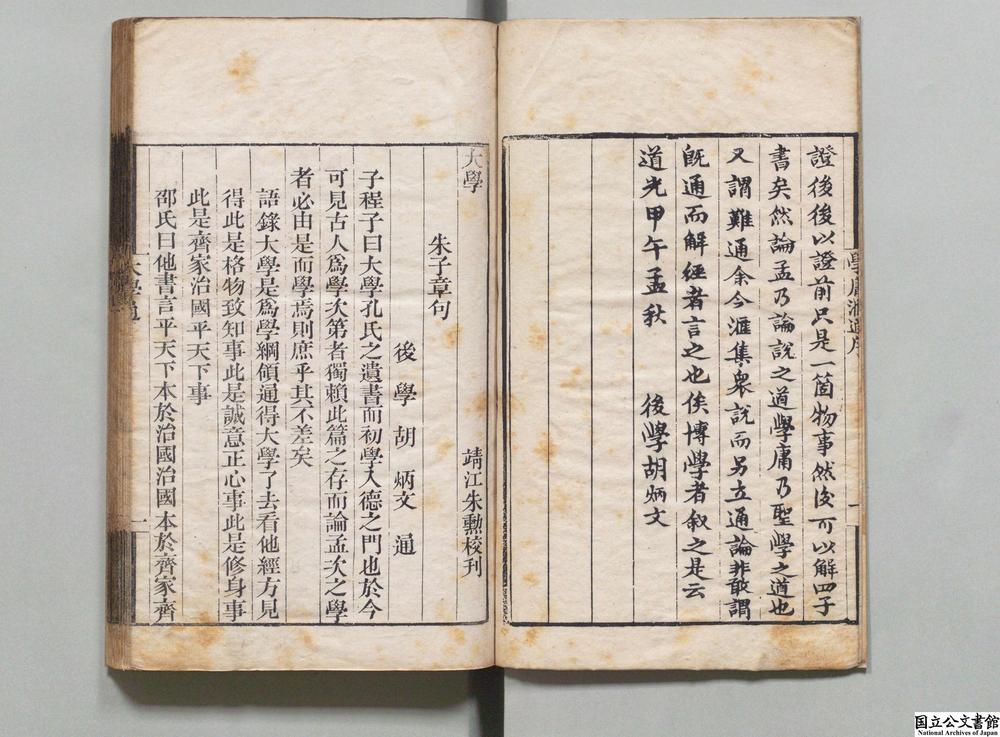 證後後以證前只是一箇物事然後可以解四子
書矣然論孟乃論說之道學庸乃聖學之道也
又謂難通余今滙集衆說而另立通論非敢謂
既通而解經者言之也俟博學者叙之是云
道光甲午孟秋 後學胡炳文
大學 靖江朱勳校刊
朱子章句
後學胡炳文通
子程子曰大學孔氏之遺書而初學入德之門也於今
可見古人爲學次第者獨賴此篇之存而論孟次之學
者必由是而學焉則庶乎其不差矣
語錄大學是爲學綱領通得大學了去看他經方見
得此是格物致知事此是誠意正心事此是修身事
此是齊家治國平天下事
邵氏曰他書言平天下本於治國治國本於齊家齊
大學通
一
国立公文書館
National Archives of Japan